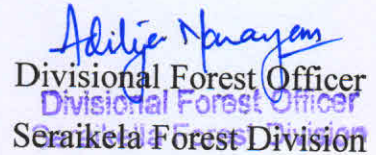 Aditya Narayan
Divisional Forest Officer
Divisional Forest Officer
Seraikela Forest Division
Seraikela Forest Division